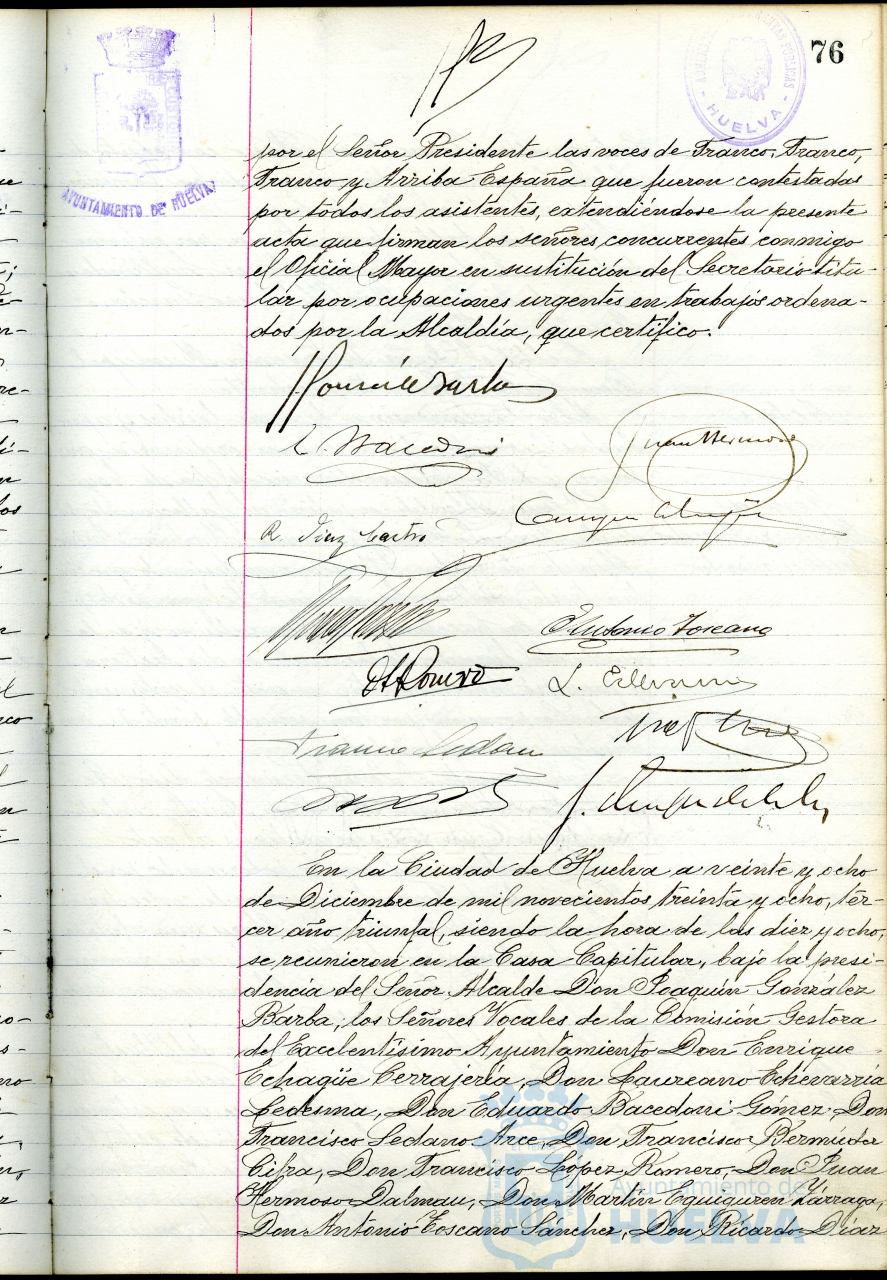 76
AYUNTAMIENTO DE HUELVA
HUELVA
por el Señor Presidente las voces de Franco, Franco,
Franco y Arriba España que fueron contestadas
por todos los asistentes, extendiéndose la presente
acta que firman los señores concurrentes conmigo
el Oficial Mayor en sustitución del Secretario titu-
lar por ocupaciones urgentes en trabajos ordena-
dos por la Alcaldía, que certifico.
Juan Hermoso
R. Diaz Castro
Antonio Toscano
Romero
En la Ciudad de Huelva a veinte y ocho
de Diciembre de mil novecientos treinta y ocho, tér-
cer año triunfal, siendo la hora de las diez y ocho,
se reunieron en la Casa Capitular, bajo la presi-
dencia del Señor Alcalde Don Joaquín González
Barba, los Señores Vocales de la Comisión Gestora
del Excelentísimo Ayuntamiento Don Enrique
Echagüe Cerrajería, Don Laureano Echevarría
Ledesma, Don Eduardo Bacedoni Gómez, Don
Francisco Sedano Arce, Don Francisco Bermúdez
Cifra, Don Francisco López Romero, Don Juan
Hermoso Dalmau, Don Martín Eguiguren Zárraga,
Don Antonio Toscano Sánchez, Don Ricardo Díaz
Ayuntamiento de
HUELVA